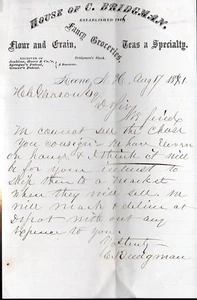 HOUSE OF C. BRIDGMAN.
ESTABLISHED
Fancy Groceries,
Flour and Grain,
Teas a Specialty.
Bridgman's Block
Keene, N.H. Aug 17 1881
D Sir
We find
We cannot sell the cheese
you consign. We have
on hand & I think it will
be for your interest to
ship them to a market
where they will sell. We
will mark & deliver at
Depot with out any
expence to you.
C Bridgman